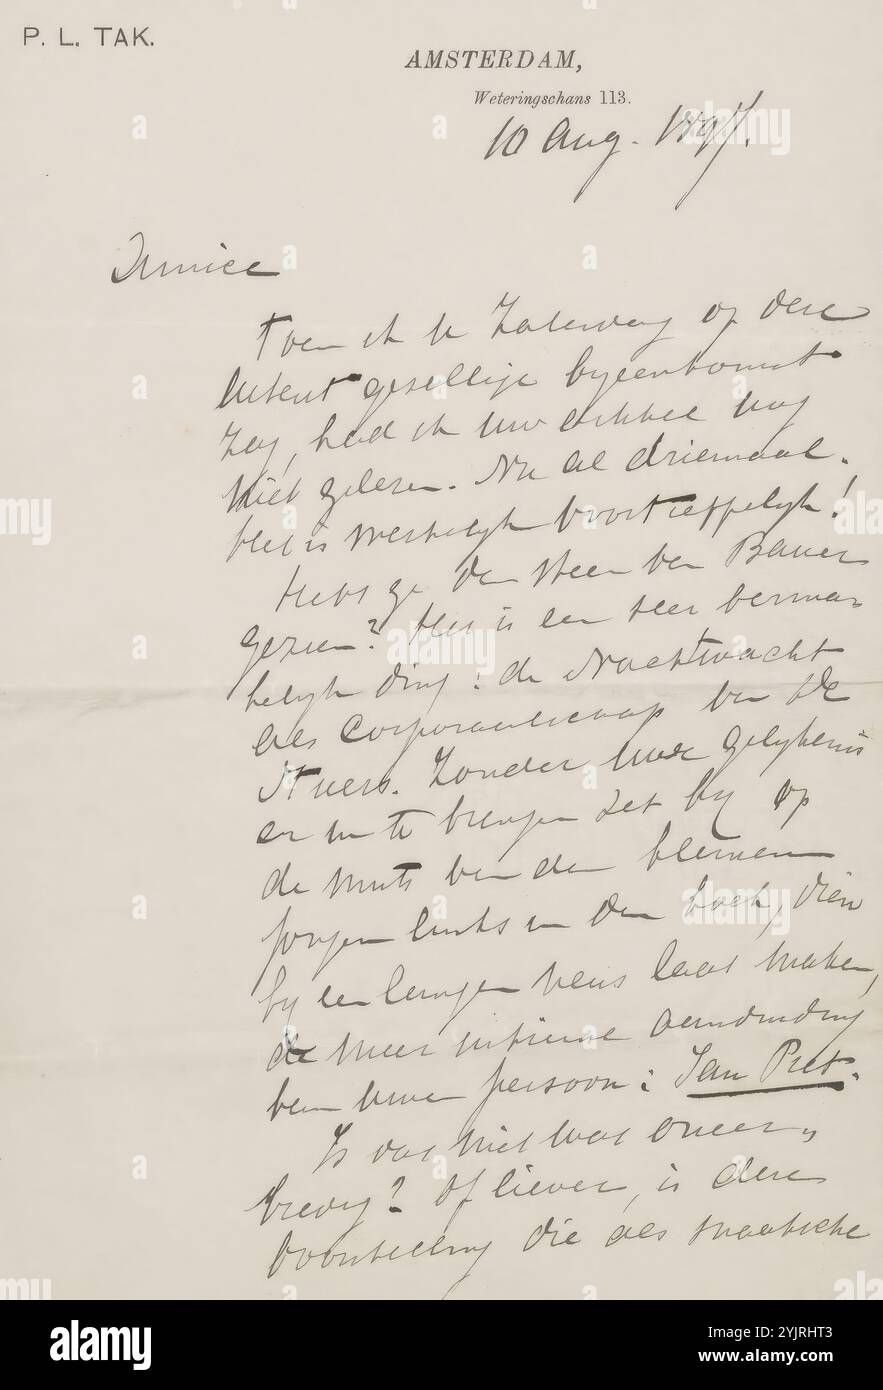 P. L. TAK.
AMSTERDAM,
Weteringschans 113.
10 Aug. 1897.
Amice
Toen ik u Zaterdag op deze
gezellige byeenkomst
zag, had ik uw artikel nog
niet gelezen. Nu al driemaal.
Het is werkelijk voortreffelijk!
Hebt ge den steen van Bauer
gezien? Het is een zeer vermake-
lijk ding: de Nachtwacht
als Corporaalschap van de
St uers. Zonder uwe gelijkenis
er in te brengen zet hij op
de muts van den kleinen
jongen links in den hoek, dien
hij een langen neus laat maken,
de meer intieme aanduiding
van uwen persoon: Jan Piet.
Is dat niet wat oneer-
biedig? Of liever, is deze
voorstelling die als
alamy
Image ID: 2YJRHT3
www.alamy.com